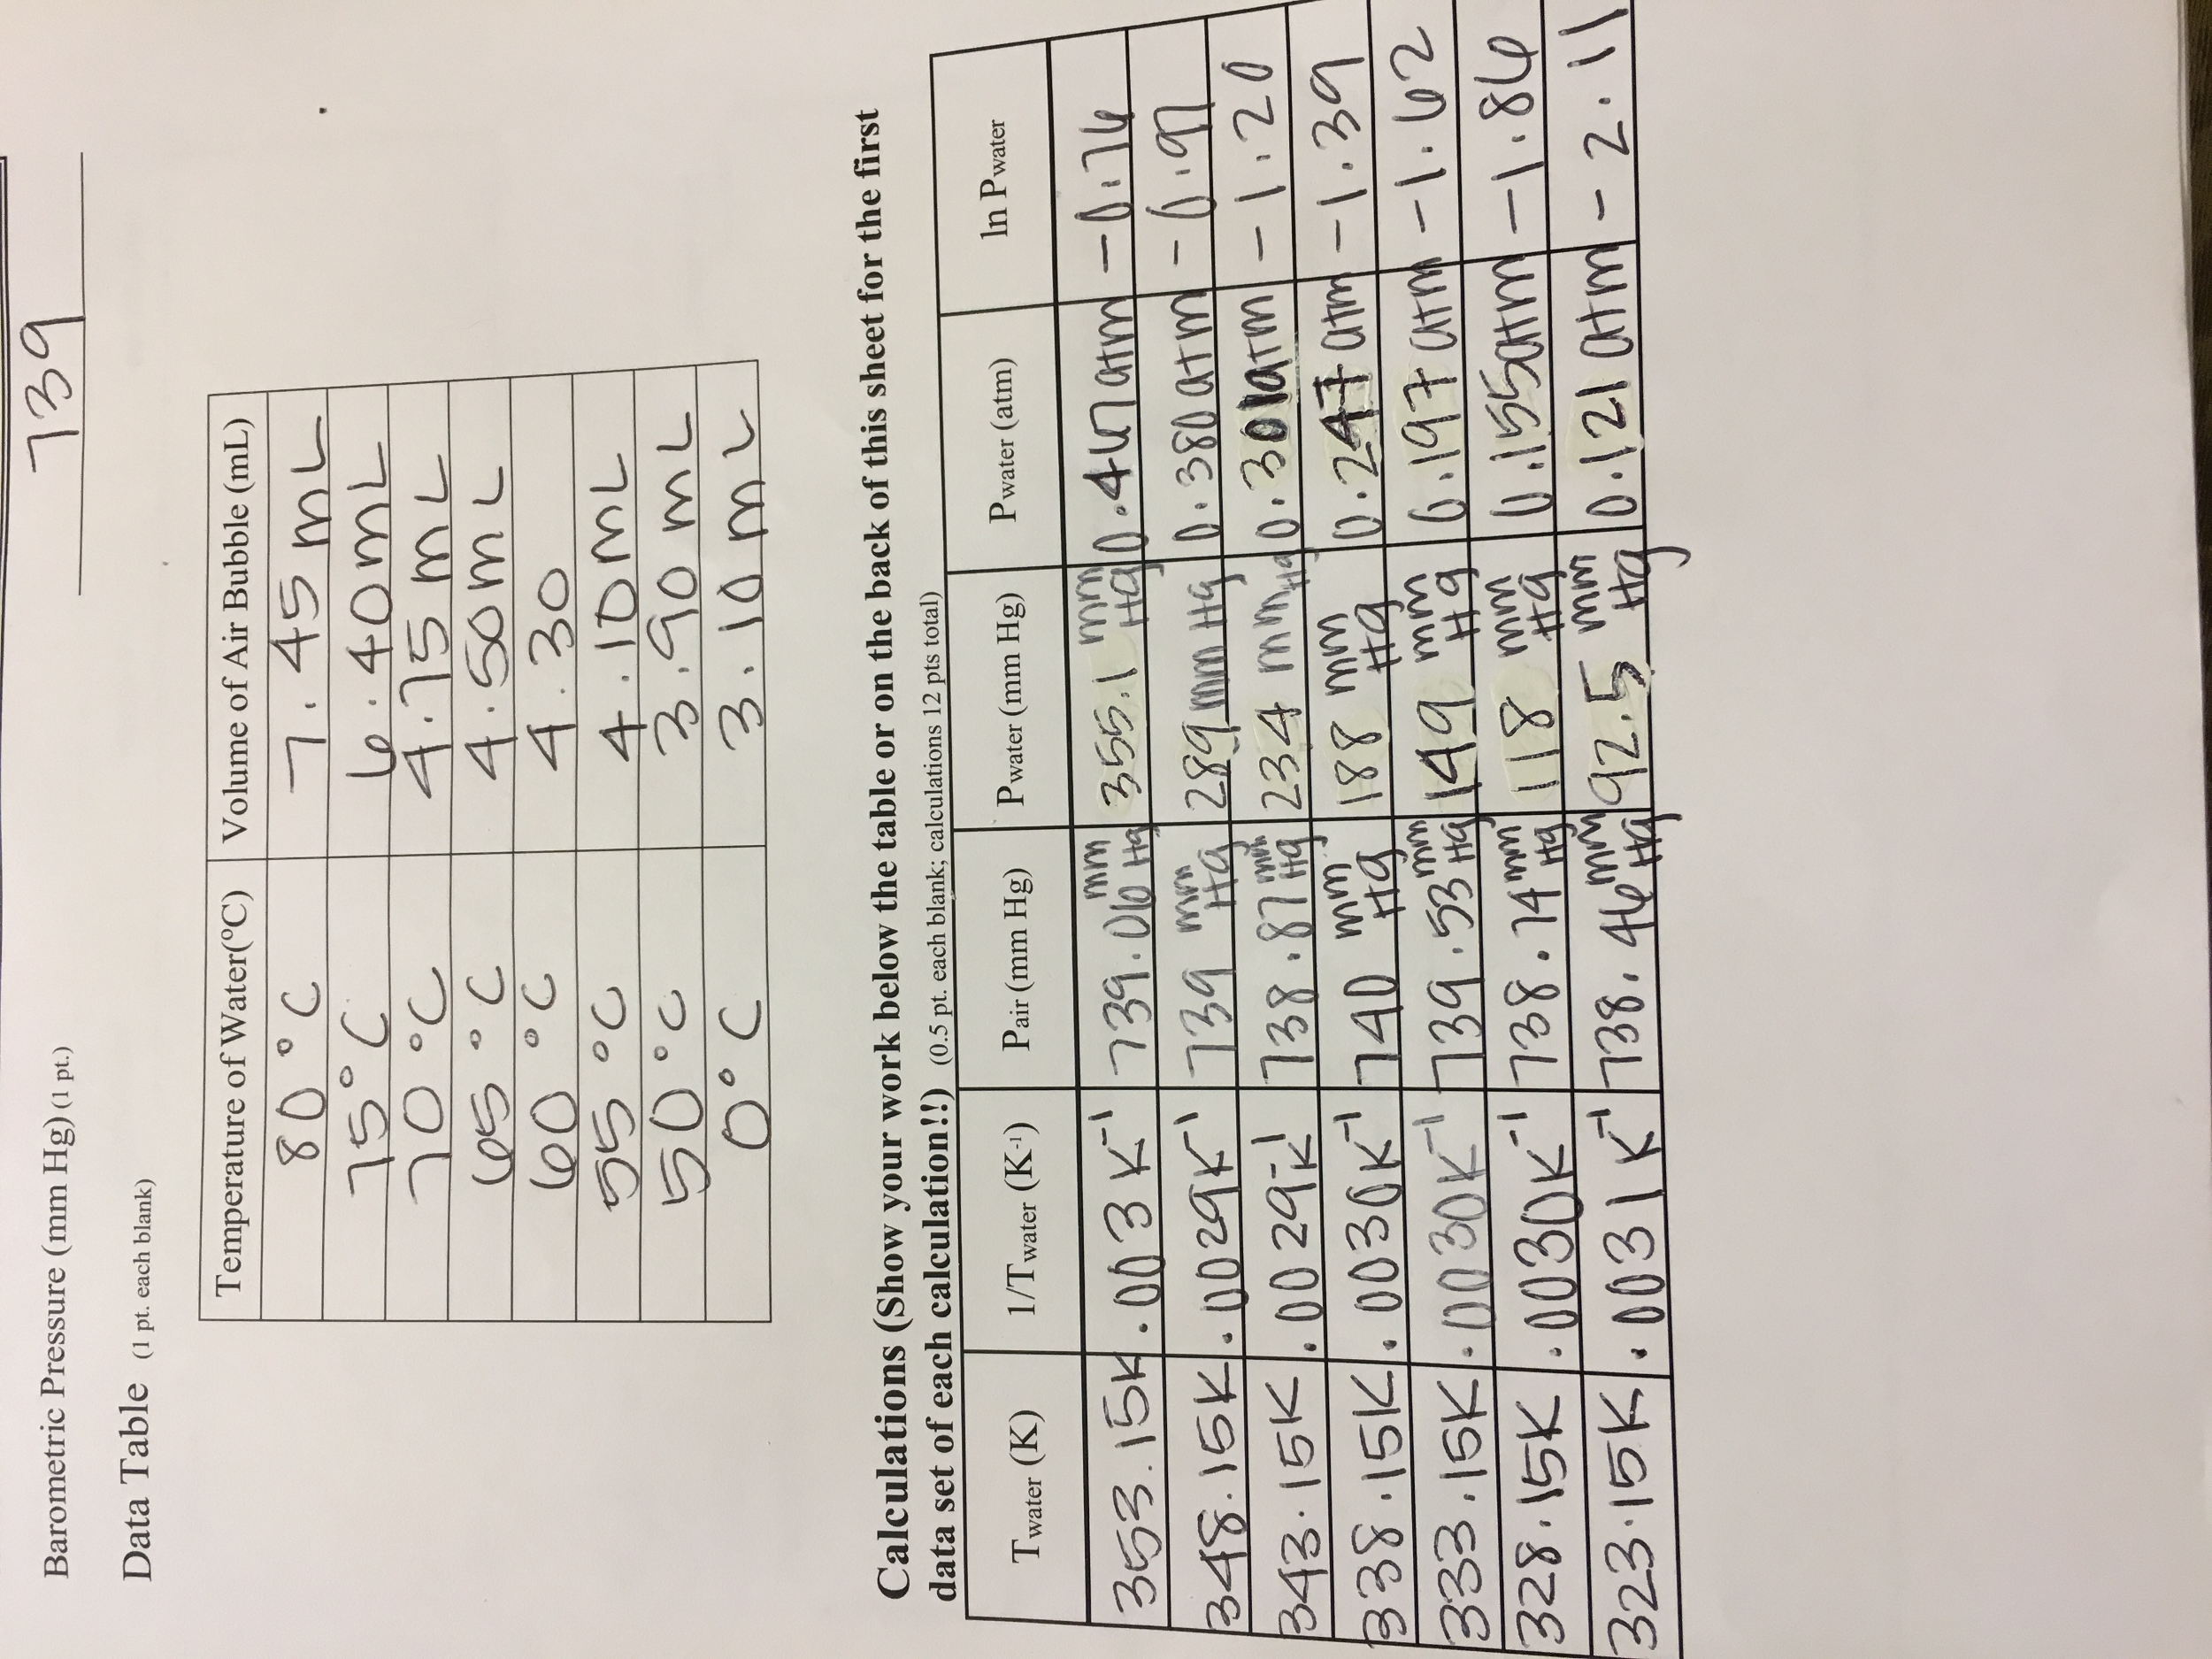 Barometric Pressure (mm Hg) (1 pt.) 739
Data Table (1 pt. each blank)
Temperature of Water(°C) Volume of Air Bubble (mL)
80°C 7.45 mL
75°C 6.40 mL
70°C 4.75 mL
65°C 4.50 mL
60°C 4.30
55°C 4.10 mL
50°C 3.90 mL
0°C 3.10 mL
Calculations (Show your work below the table or on the back of this sheet for the first
data set of each calculation!!) (0.5 pt. each blank; calculations 12 pts total)
Twater (K) 1/Twater (K-1) Pair (mm Hg) Pwater (mm Hg) Pwater (atm) ln Pwater
353.15K .003 K-1 739.06 mm Hg 355.1 mm Hg 0.467 atm -0.76
348.15K .0029K-1 739 mm Hg 289 mm Hg 0.380 atm -0.97
343.15K .0029K-1 738.87 mm Hg 234 mm Hg 0.301 atm -1.20
338.15K .0030K-1 740 mm Hg 188 mm Hg 0.247 atm -1.39
333.15K .0030K-1 739.53 mm Hg 149 mm Hg 0.197 atm -1.62
328.15K .0030K-1 738.74 mm Hg 118 mm Hg 0.155 atm -1.86
323.15K .0031K-1 738.46 mm Hg 92.5 mm Hg 0.121 atm -2.11